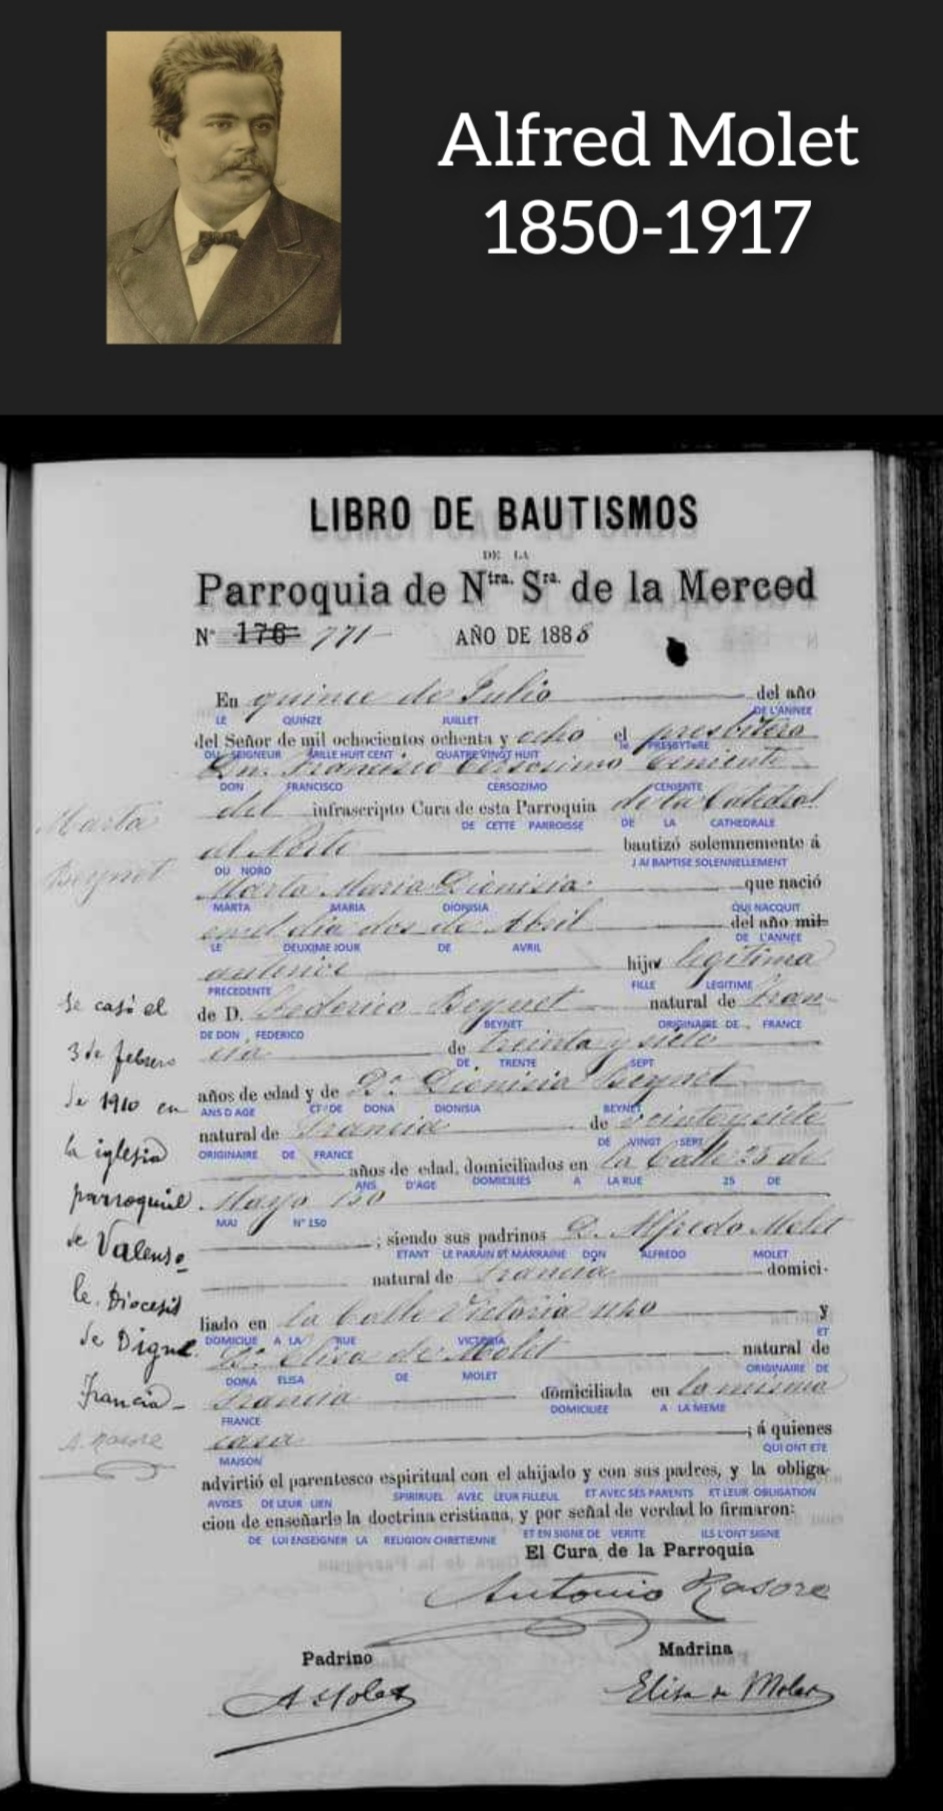 Alfred Molet
1850-1917
LIBRO DE BAUTISMOS
DE LA
Parroquia de Ntra. Sra. de la Merced
N° 176 771 AÑO DE 1888
En quince de Julio del año
LE QUINZE JUILLET DE L'ANNEE
del Señor de mil ochocientos ochenta y ocho el presbitero
DU SEIGNEUR MILLE HUIT CENT QUATRE VINGT HUIT le PRESBYTeRE
Dn. Francisco Cersosimo teniente
DON FRANCISCO CERSOZIMO CENIENTE
del infrascripto Cura de esta Parroquia de la Catedral
DE CETTE PARROISSE DE LA CATHEDRALE
Marta
al Norte bautizó solemnemente á
DU NORD J AI BAPTISE SOLENNELLEMENT
Beynet
Marta Maria Dionisia que nació
MARTA MARIA DIONISIA QUI NACQUIT
en el dia dos de Abril del año mil
LE DEUXIME JOUR DE AVRIL DE L'ANNEE
anterior hija legitima
PRECEDENTE FILLE LEGITIME
Se casó el
de D. Federico Beynet natural de Fran-
DE DON , FEDERICO BEYNET ORIGINAIRE DE , FRANCE
3 de febrero
cia de treinta y siete
DE TRENTE SEPT
de 1910 en
años de edad y de Da. Dionisia Beynet
ANS D AGE ET DE DONA DIONISIA BEYNET
natural de Francia de veinte y siete
ORIGINAIRE DE FRANCE DE VINGT SEPT
la iglesia
años de edad, domiciliados en la Calle 25 de
ANS D'AGE DOMICILIES A LA RUE 25 DE
parroquial
Mayo 150
MAI N° 150
de Valenso
; siendo sus padrinos D. Alfredo Molet
ETANT LE PARAIN ET MARRAINE DON ALFREDO MOLET
natural de Francia domici-
le. Diocesis
liado en la Calle Victoria y
DOMICILIE A LA RUE VICTORIA ET
de Digne
Da. Elisa de Molet natural de
DONA ELISA DE MOLET ORIGINAIRE DE
Francia-
Francia domiciliada en la misma
FRANCE DOMICILIEE A LA MEME
A. Rasore
casa ; á quienes
MAISON QUI ONT ETE
advirtió el parentesco espiritual con el ahijado y con sus padres, y la obliga-
AVISES DE LEUR LIEN SPIRIRUEL AVEC LEUR FILLEUL ET AVEC SES PARENTS ET LEUR OBLIGATION
cion de enseñarle la doctrina cristiana, y por señal de verdad lo firmaron:
DE LUI ENSEIGNER LA RELIGION CHRETIENNE ET EN SIGNE DE VERITE ILS L'ONT SIGNE
El Cura de la Parroquia
Antonio Rasore
Padrino Madrina
A Molet Elisa de Molet